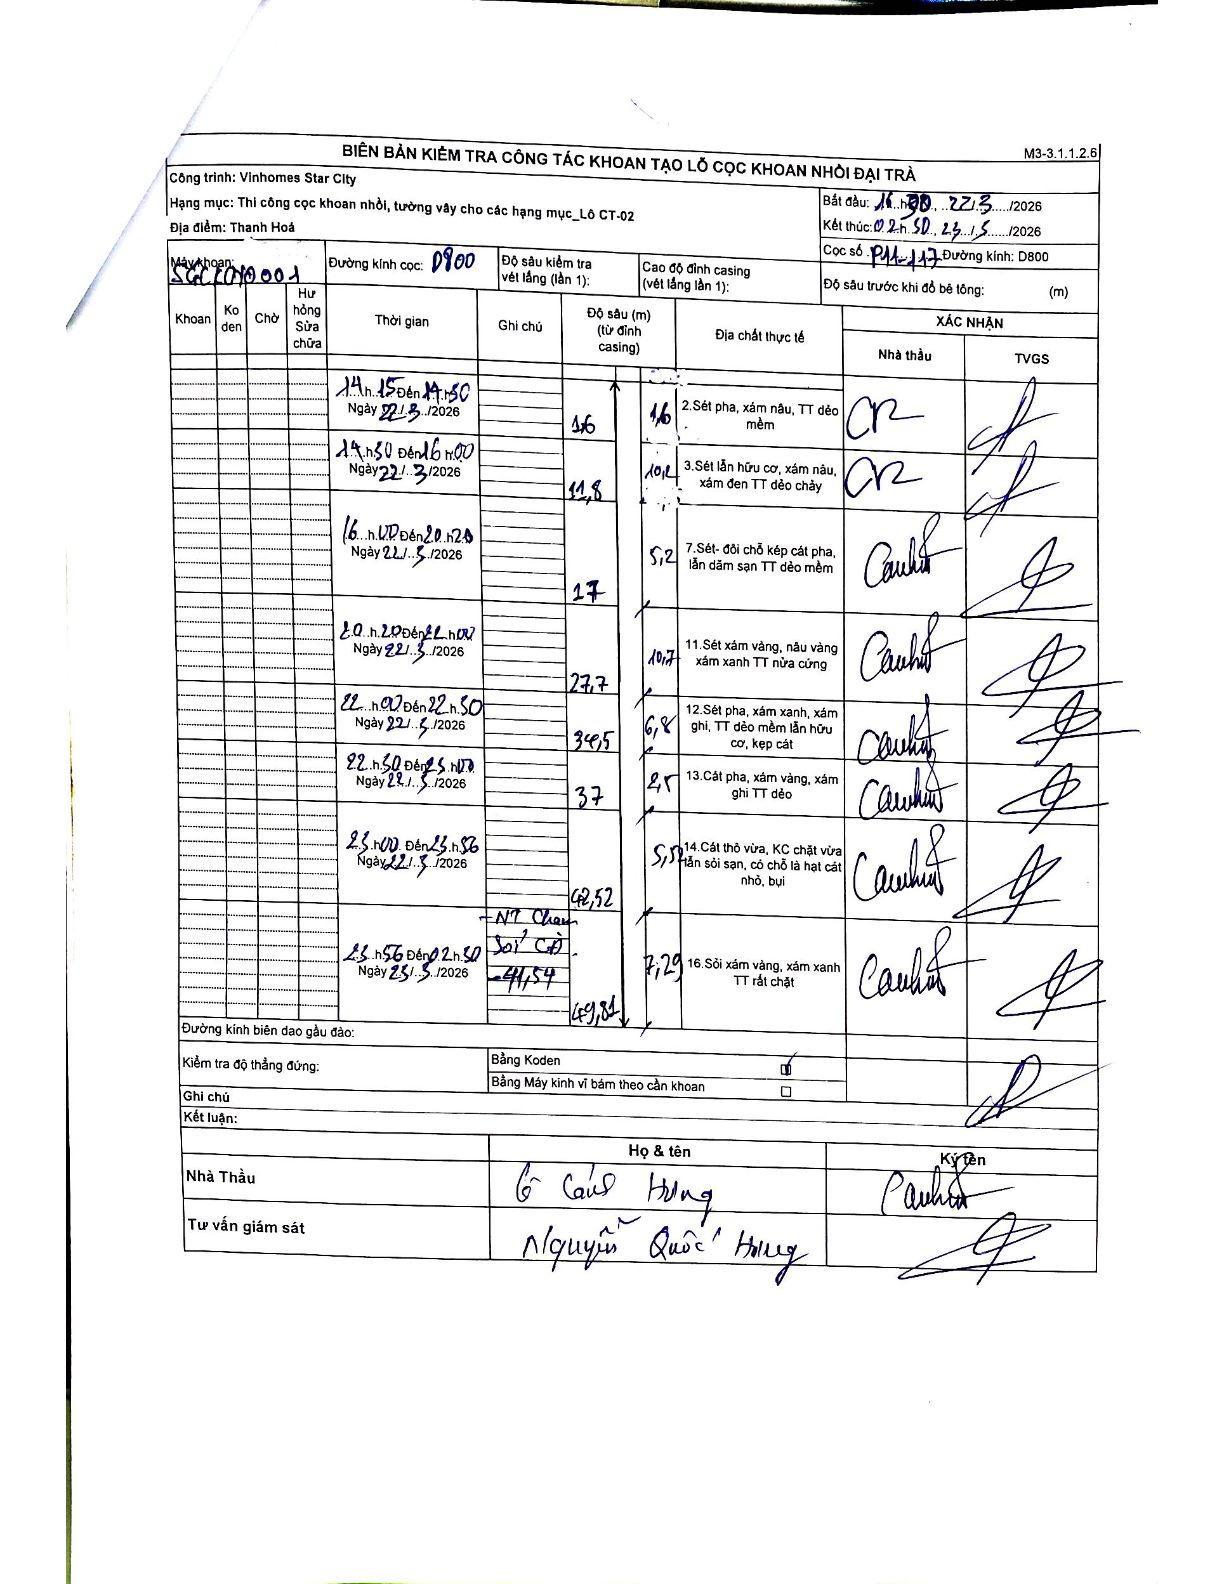 M3-3.1.1.2.6
BIÊN BẢN KIỂM TRA CÔNG TÁC KHOAN TẠO LỖ CỌC KHOAN NHỒI ĐẠI TRÀ
Công trình: Vinhomes Star City
Hạng mục: Thi công cọc khoan nhồi, tường vây cho các hạng mục_Lô CT-02
Địa điểm: Thanh Hoá
Bắt đầu: 22/.3./2026
Kết thúc: 02.h 50, 23./.3./2026
Cọc số: P11-117 Đường kính: D800
Máy khoan:
Đường kính cọc: D900
Độ sâu kiểm tra vét lắng (lần 1):
Cao độ đỉnh casing (vét lắng lần 1):
Độ sâu trước khi đổ bê tông: (m)
Khoan Ko den Chờ Hư hỏng Sửa chữa Thời gian Ghi chú Độ sâu (m) (từ đỉnh casing) Địa chất thực tế XÁC NHẬN
Nhà thầu TVGS
14.h.15 Đến 14.h30
Ngày 22/.3./2026
1,6 1,6 2.Sét pha, xám nâu, TT dẻo mềm
14.h30 Đến 16 h.00
Ngày 22/.3/2026
11,8 10,2 3.Sét lẫn hữu cơ, xám nâu, xám đen TT dẻo chảy
16.h.00 Đến 20.h20
Ngày 22/.3./2026
17 5,2 7.Sét- đôi chỗ kép cát pha, lẫn dăm sạn TT dẻo mềm
20.h.20 Đến 22.h00
Ngày 22/.3./2026
27,7 10,7 11.Sét xám vàng, nâu vàng xám xanh TT nửa cứng
22.h.00 Đến 22.h.30
Ngày 22/.3./2026
34,5 6,8 12.Sét pha, xám xanh, xám ghi, TT dẻo mềm lẫn hữu cơ, kẹp cát
22.h.30 Đến 23.h00
Ngày 22/.3./2026
37 2,5 13.Cát pha, xám vàng, xám ghi TT dẻo
23.h00. Đến 23.h.56
Ngày 22/.3./2026
42,52 5,52 14.Cát thô vừa, KC chặt vừa lẫn sỏi sạn, có chỗ là hạt cát nhỏ, bụi
23.h56 Đến 02h.50
Ngày 23/.3./2026
- NT Chạm
Sỏi CĐ
-41,54
49,81 7,29 16.Sỏi xám vàng, xám xanh TT rất chặt
Đường kính biên dao gầu đào:
Kiểm tra độ thẳng đứng:
Bằng Koden
Bằng Máy kinh vĩ bám theo cần khoan
Ghi chú
Kết luận:
Họ & tên Ký tên
Nhà Thầu Hưng
Tư vấn giám sát Nguyễn Quốc Hưng